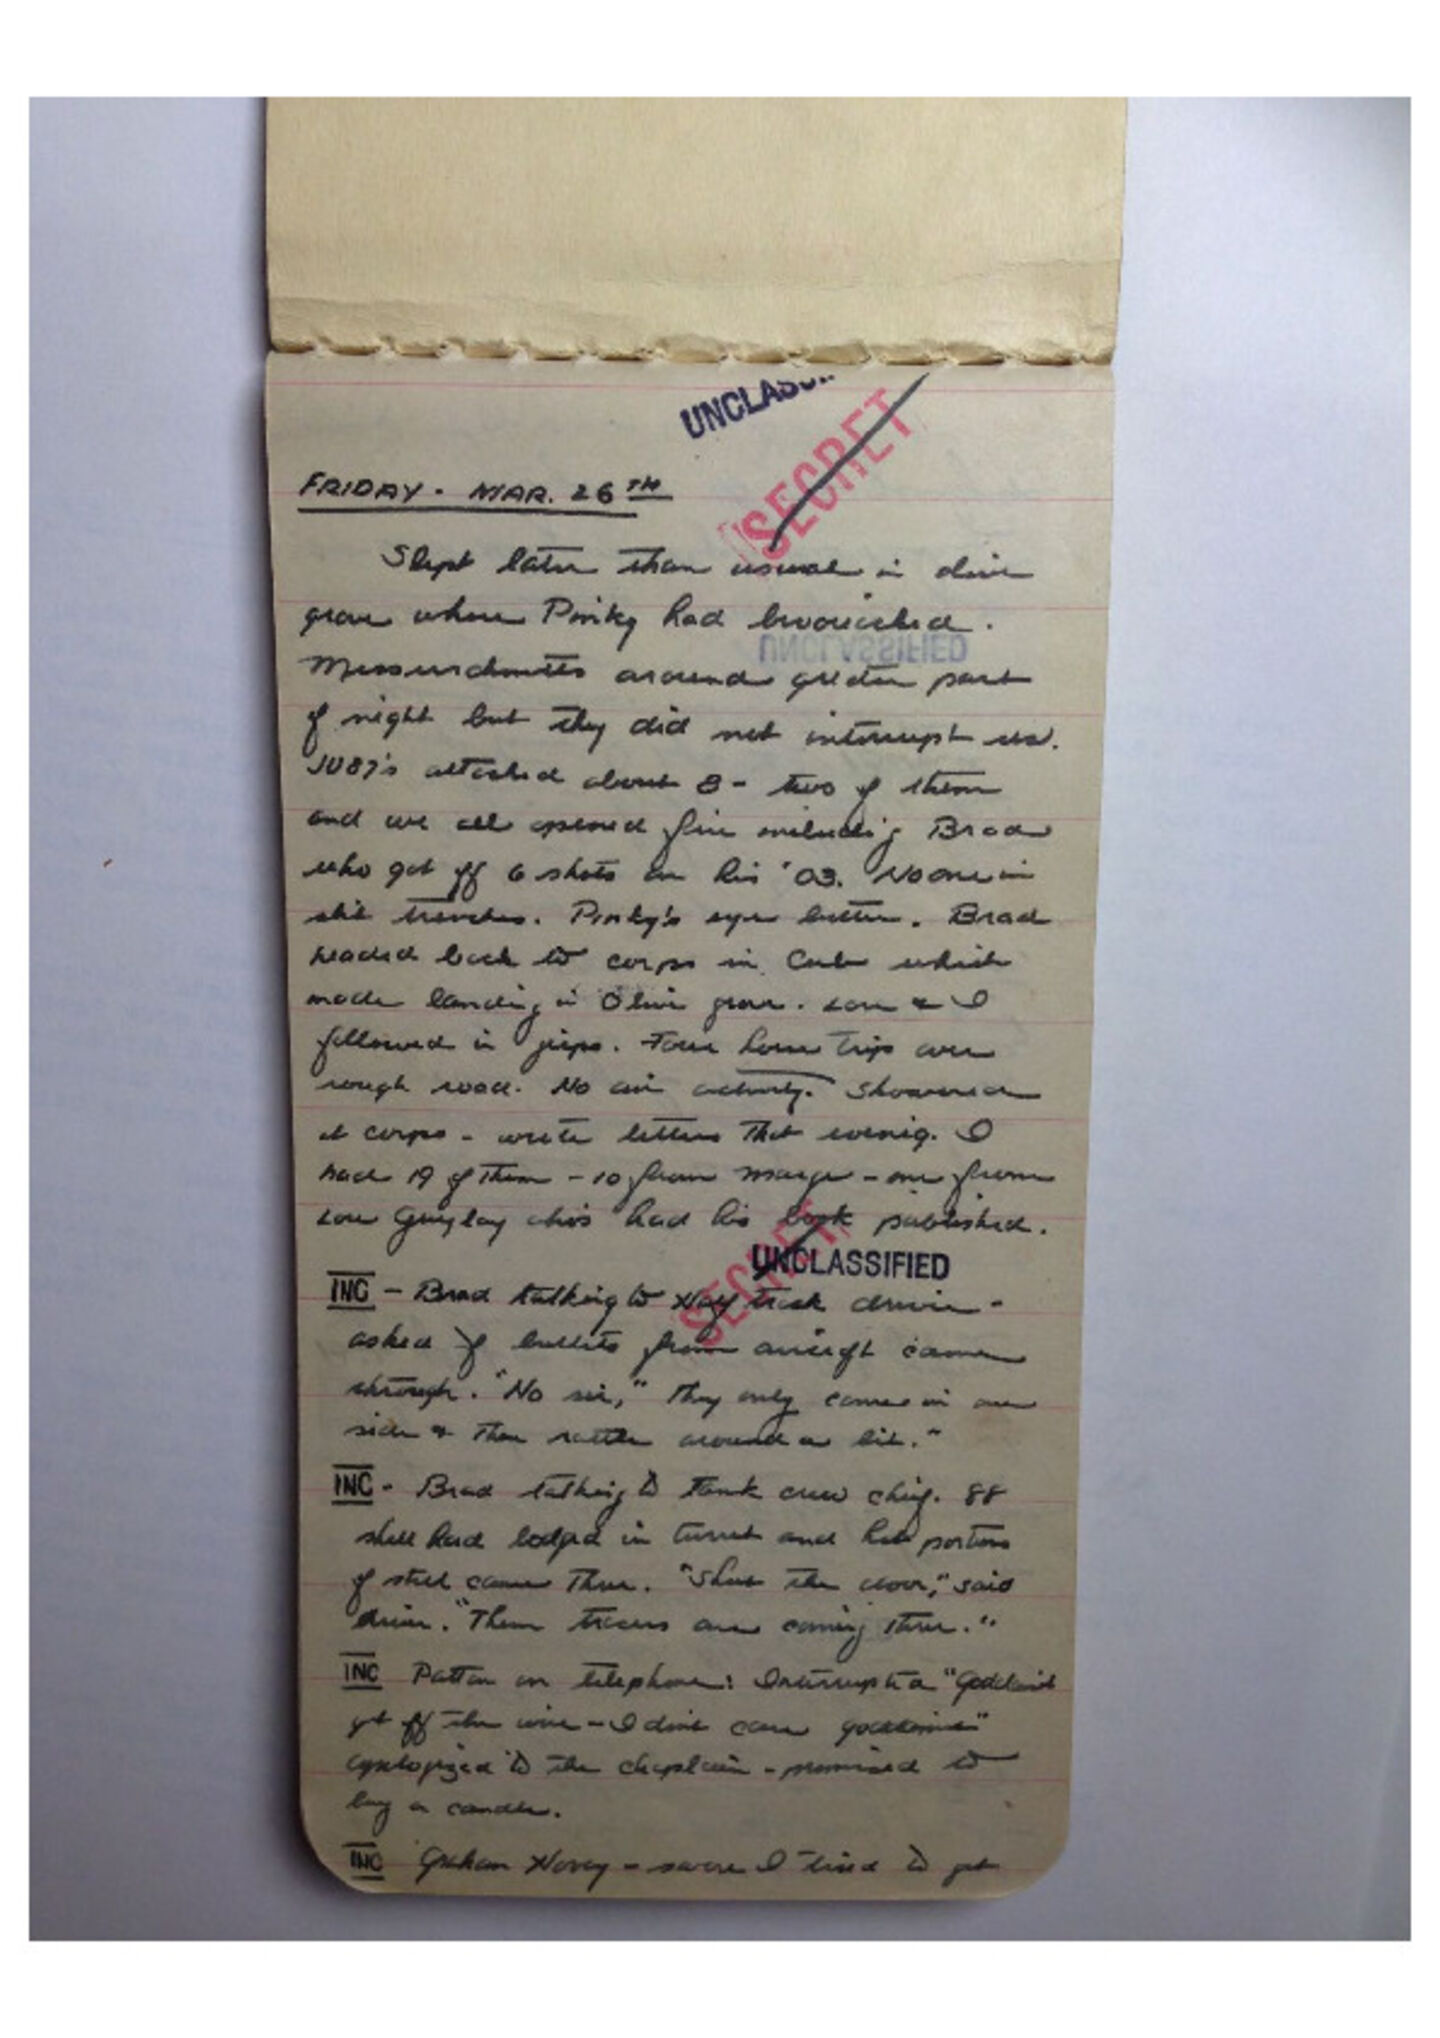 UNCLASS
SECRET
FRIDAY - MAR. 26TH
Slept later than usual in olive
grove where Pinky had bivouacked.
UNCLASSIFIED
Messerschmitts around greater part
of night but they did not interrupt us.
JU87's attacked about 8 - two of them
and we all opened fire including Brad
who got off 6 shots on his '03. No one in
slit trenches. Pinky's eye better. Brad
headed back to corps in Cub which
made landing in Olive grove. Lou & I
followed in jeeps. Four hour trip over
rough road. No air activity. Showered
at corps - wrote letters that evening. I
had 19 of them - 10 from Marge - one from
Lou Guylay who's had his book published.
UNCLASSIFIED
SECRET
INC - Brad talking to truck driver -
asked if bullets from aircraft came
through. "No sir," They only come in one
side & then rattle around a bit."
INC - Brad talking to tank crew chief. 88
shell had lodged in turret and hot portion
of still came thru. "Shut the door," said
driver. "Them tracers are coming thru."
INC Patton on telephone: Interrupted "Goddamit
get off the wire - I dont care"
apologized to the chaplain - promised to
buy a candle.
INC Graham - swore I tried to get